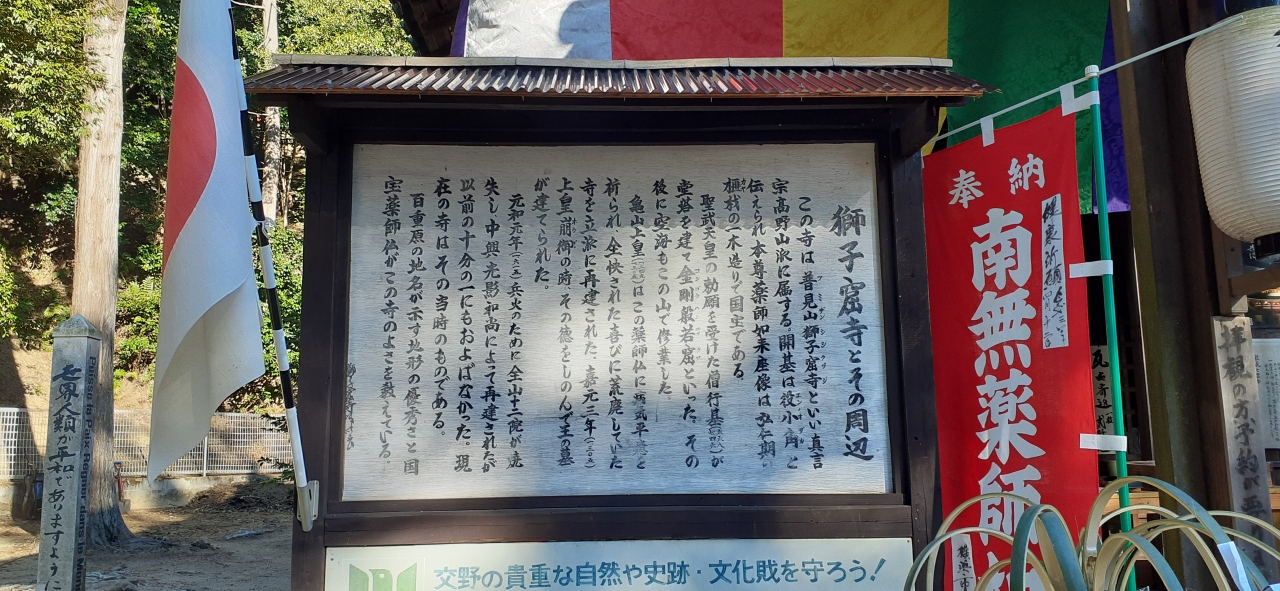 獅子窟寺とその周辺
この寺は普見山獅子窟寺といい真言
宗高野山派に属する、開基は役小角と
伝えられ本尊薬師如来座像は弘仁期
榧材の一木造りで国宝である。
聖武天皇の勅願を受けた僧行基が
堂塔を建て金剛般若窟といった。その
後に空海もこの山で修業した
亀山上皇はこの薬師仏に病気平癒と
祈られ、全快された喜びに荒廃していた
寺を立派に再建された、嘉元三年
上皇崩御の時、その徳をしのんで王の墓
が建てられた
元和元年兵火のために全山十二院が焼
失し中興光影和尚によって再建されたが
以前の十分の一にもおよばなかった。現
在の寺はその当時のものである。
百重原の地名が示す地形の優秀さと国
宝薬師仏がこの寺のよさを教えている。
交野の貴重な自然や史跡・文化財を守ろう！
奉納
南無薬師
世界人類が平和でありますように
拝観の方予約が